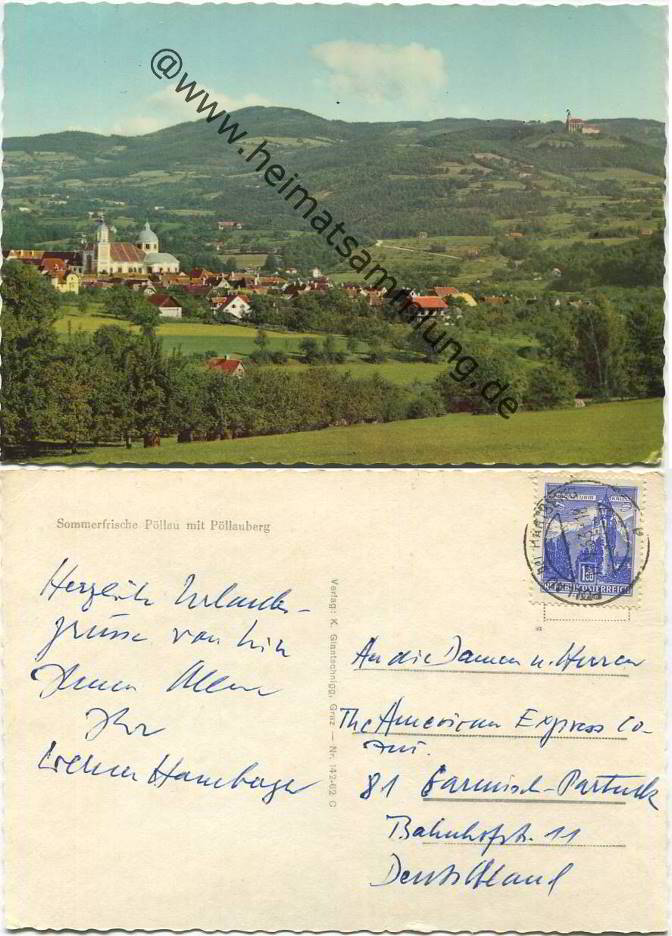 @www.heimatsammlung.de
Sommerfrische Pöllau mit Pöllauberg
Herzliche Urlaubs-
grüsse von hier
Ihnen Allen
Ihr
Hamberger
Verlag: K. Glantschnigg, Graz — Nr. 142-62 C
REPUBLIK ÖSTERREICH
An die Damen u. Herren
The American Express Co-
81 Garmisch-Partenk
Bahnhofstr. 11
Deutschland